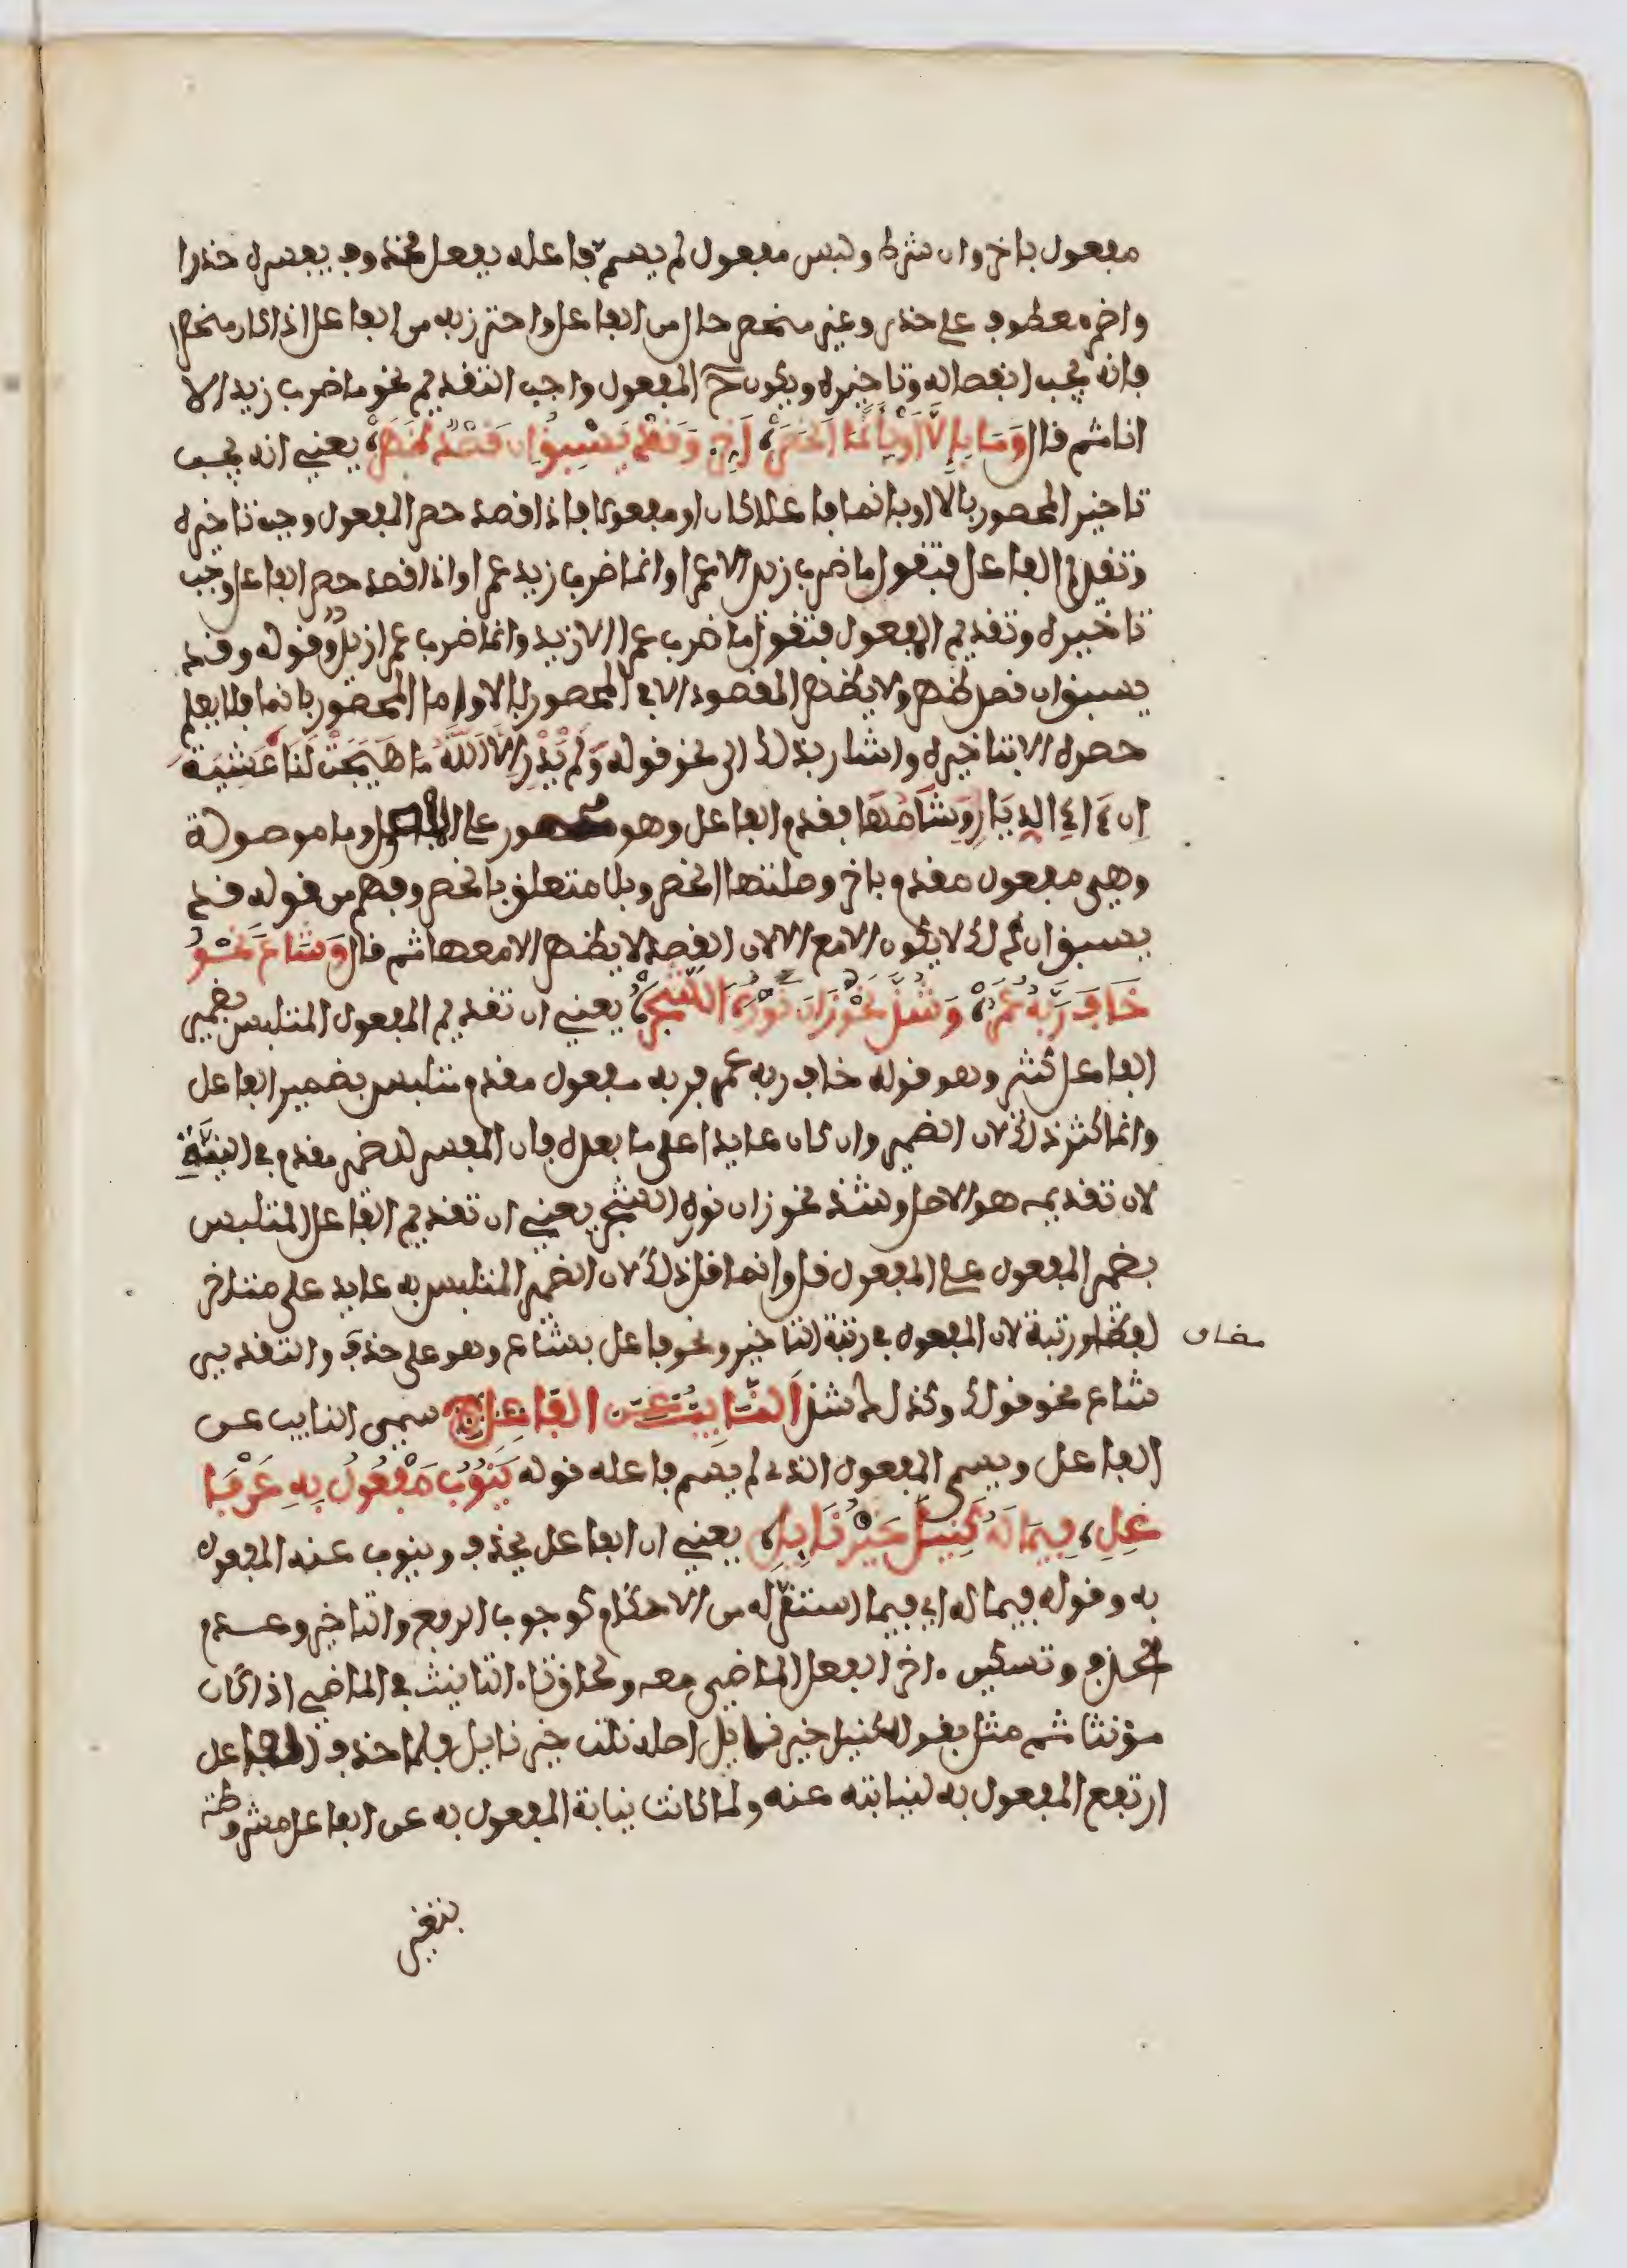 مفعول باخر وان شرط ولبس مفعول لم يسم فاعله بفعل محذوف يفسره حذرا
واضمر معطوف على حذر وغير منحصر حال من الفاعل واحترز به من الفاعل اذا كان منحصرا
فانه يجب انفصاله وتاخيره ويكون ح المفعول واجب التقديم نحو ما ضرب زيدا الا
انا ثم قال وَمَا بِإِلَّا أَوْ بِإِنَّمَا انْحَصَرْ، أَخِّرْ وَقَدْ يَسْبِقُ إِن قَصْدٌ ظَهَرْ، يعني انه يجب
تاخير المحصور بالا او بانما فاعلا كان او مفعولا فاذا قصد حصر المفعول وجب تاخيره
وتقديم الفاعل فتقول ما ضرب زيد الا عمرا وانما ضرب زيد عمرا واذا قصد حصر الفاعل وجب
تاخيره وتقديم المفعول فتقول ما ضرب عمرا الا زيد وانما ضرب عمرا زيدٌ وقوله وقد
يسبق ان قصد ظهر ولا يظهر المقصود الا في المحصور بالا واما المحصور بانما فلا يعلم
حصره الا بتاخيره واشار بذلك الى نحو قوله وَلَمْ يَدْرِ إِلَّا اللَّهُ مَا هَيَّجَتْ لَنَا عَشِيَّةَ
ان ءاء الديَارِ وَشَامُهَا فقدم الفاعل وهو محصور على المفعول وما موصولة
وهي مفعول مقدم باخر وصلتها انحصر وبلا متعلق بانحصر وفهم من قوله قد
يسبق ان ذلك لا يكون الا مع الا لان القصد لا يظهر الا معها ثم قال وَشَاعَ نَحْوُ
خَافَ رَبَّهُ عُمَرْ، وَشَذَّ نَحْوُ زَانَ نَوْرُهُ الشَّجَرْ، يعني ان تقديم المفعول المتلبس بضمير
الفاعل كثير وهو قوله خاف ربه عمر فربه مفعول مقدم متلبس بضمير الفاعل
وانما كثر ذلك لان الضمير وان كان عايدا على ما بعده فان المفسر للضمير مقدم في النيَّة
لان تقديمه هو الاصل وشذ نحو زان نوره الشجر يعني ان تقديم الفاعل المتلبس
بضمير المفعول على المفعول قل وانما قل ذلك لان الضمير المتلبس به عايد على متاخر
لفظا ورتبة لان المفعول في رتبة التاخير ونحو فاعل بشاع وهو على حذف والتقدير
مضاف
شاع نحو قولك وكذلك شذ اَلنَّايِبُ عَنِ الفَاعِلِ سمى النايب عن
الفاعل ويسمى المفعول الذي لم يسم فاعله قوله يَنُوبُ مَفْعُولٌ بِهِ عَنْ فَا
عِلِ، فِيمَا لَهُ كَنِيلَ خَيْرُ نَايِلِ، يعني ان الفاعل يحذف وينوب عنه المفعول
به وقوله فيما له اي فيما استقر له من الاحكام كوجوب الرفع والتاخير وعدم
الحذف وتسكين ءاخر الفعل الماضي معه ولحاق تاء التانيث في الماضي اذا كان
مؤنثا ثم مثل بقوله كنيل خير نايل اصله نلت خير نايل فلما حذف الفاعل
ارتفع المفعول به لنيابته عنه ولما كانت نيابة المفعول به عن الفاعل مشروطة
بتغيير